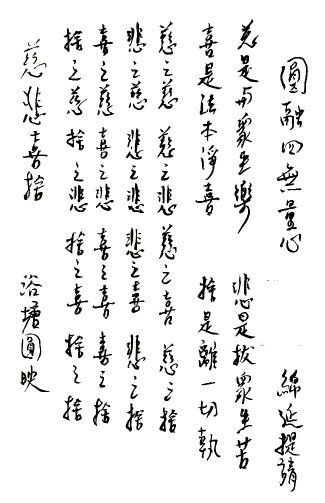 圓融四無量心 綿延提請
慈是與眾生樂 悲是拔眾生苦
喜是法本淨喜 捨是離一切執
慈之慈 慈之悲 慈之喜 慈之捨
悲之慈 悲之悲 悲之喜 悲之捨
喜之慈 喜之悲 喜之喜 喜之捨
捨之慈 捨之悲 捨之喜 捨之捨
慈悲喜捨 浴塘圓映